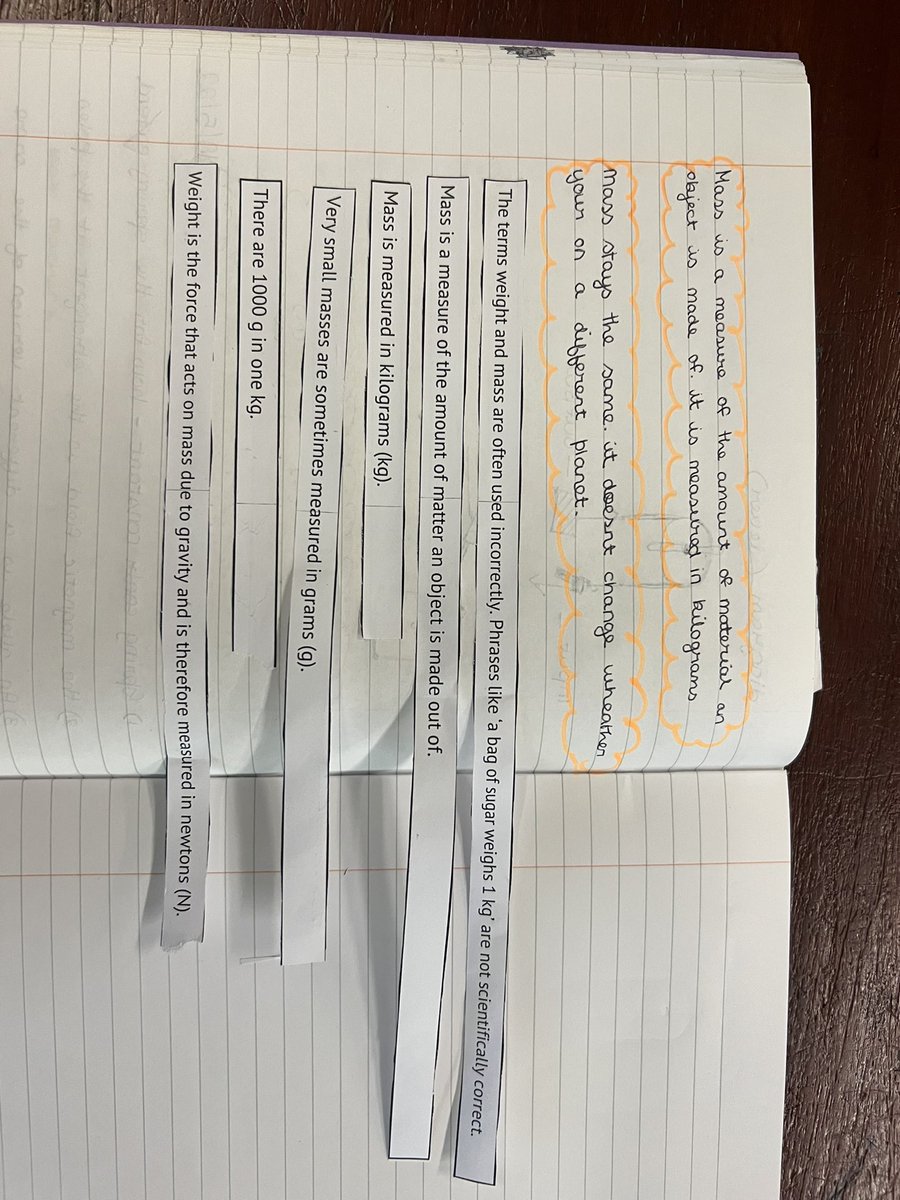 Mass is a measure of the amount of material an
object is made of. it is measured in kilograms
Mass stays the same. it doesnt change wheather
your on a different planet.
The terms weight and mass are often used incorrectly. Phrases like ‘a bag of sugar weighs 1 kg’ are not scientifically correct.
Mass is a measure of the amount of matter an object is made out of.
Mass is measured in kilograms (kg).
Very small masses are sometimes measured in grams (g).
There are 1000 g in one kg.
Weight is the force that acts on mass due to gravity and is therefore measured in newtons (N).